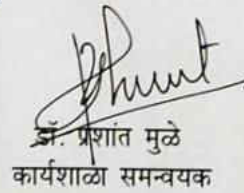 डॉ. प्रशांत मुळे
कार्यशाळा समन्वयक